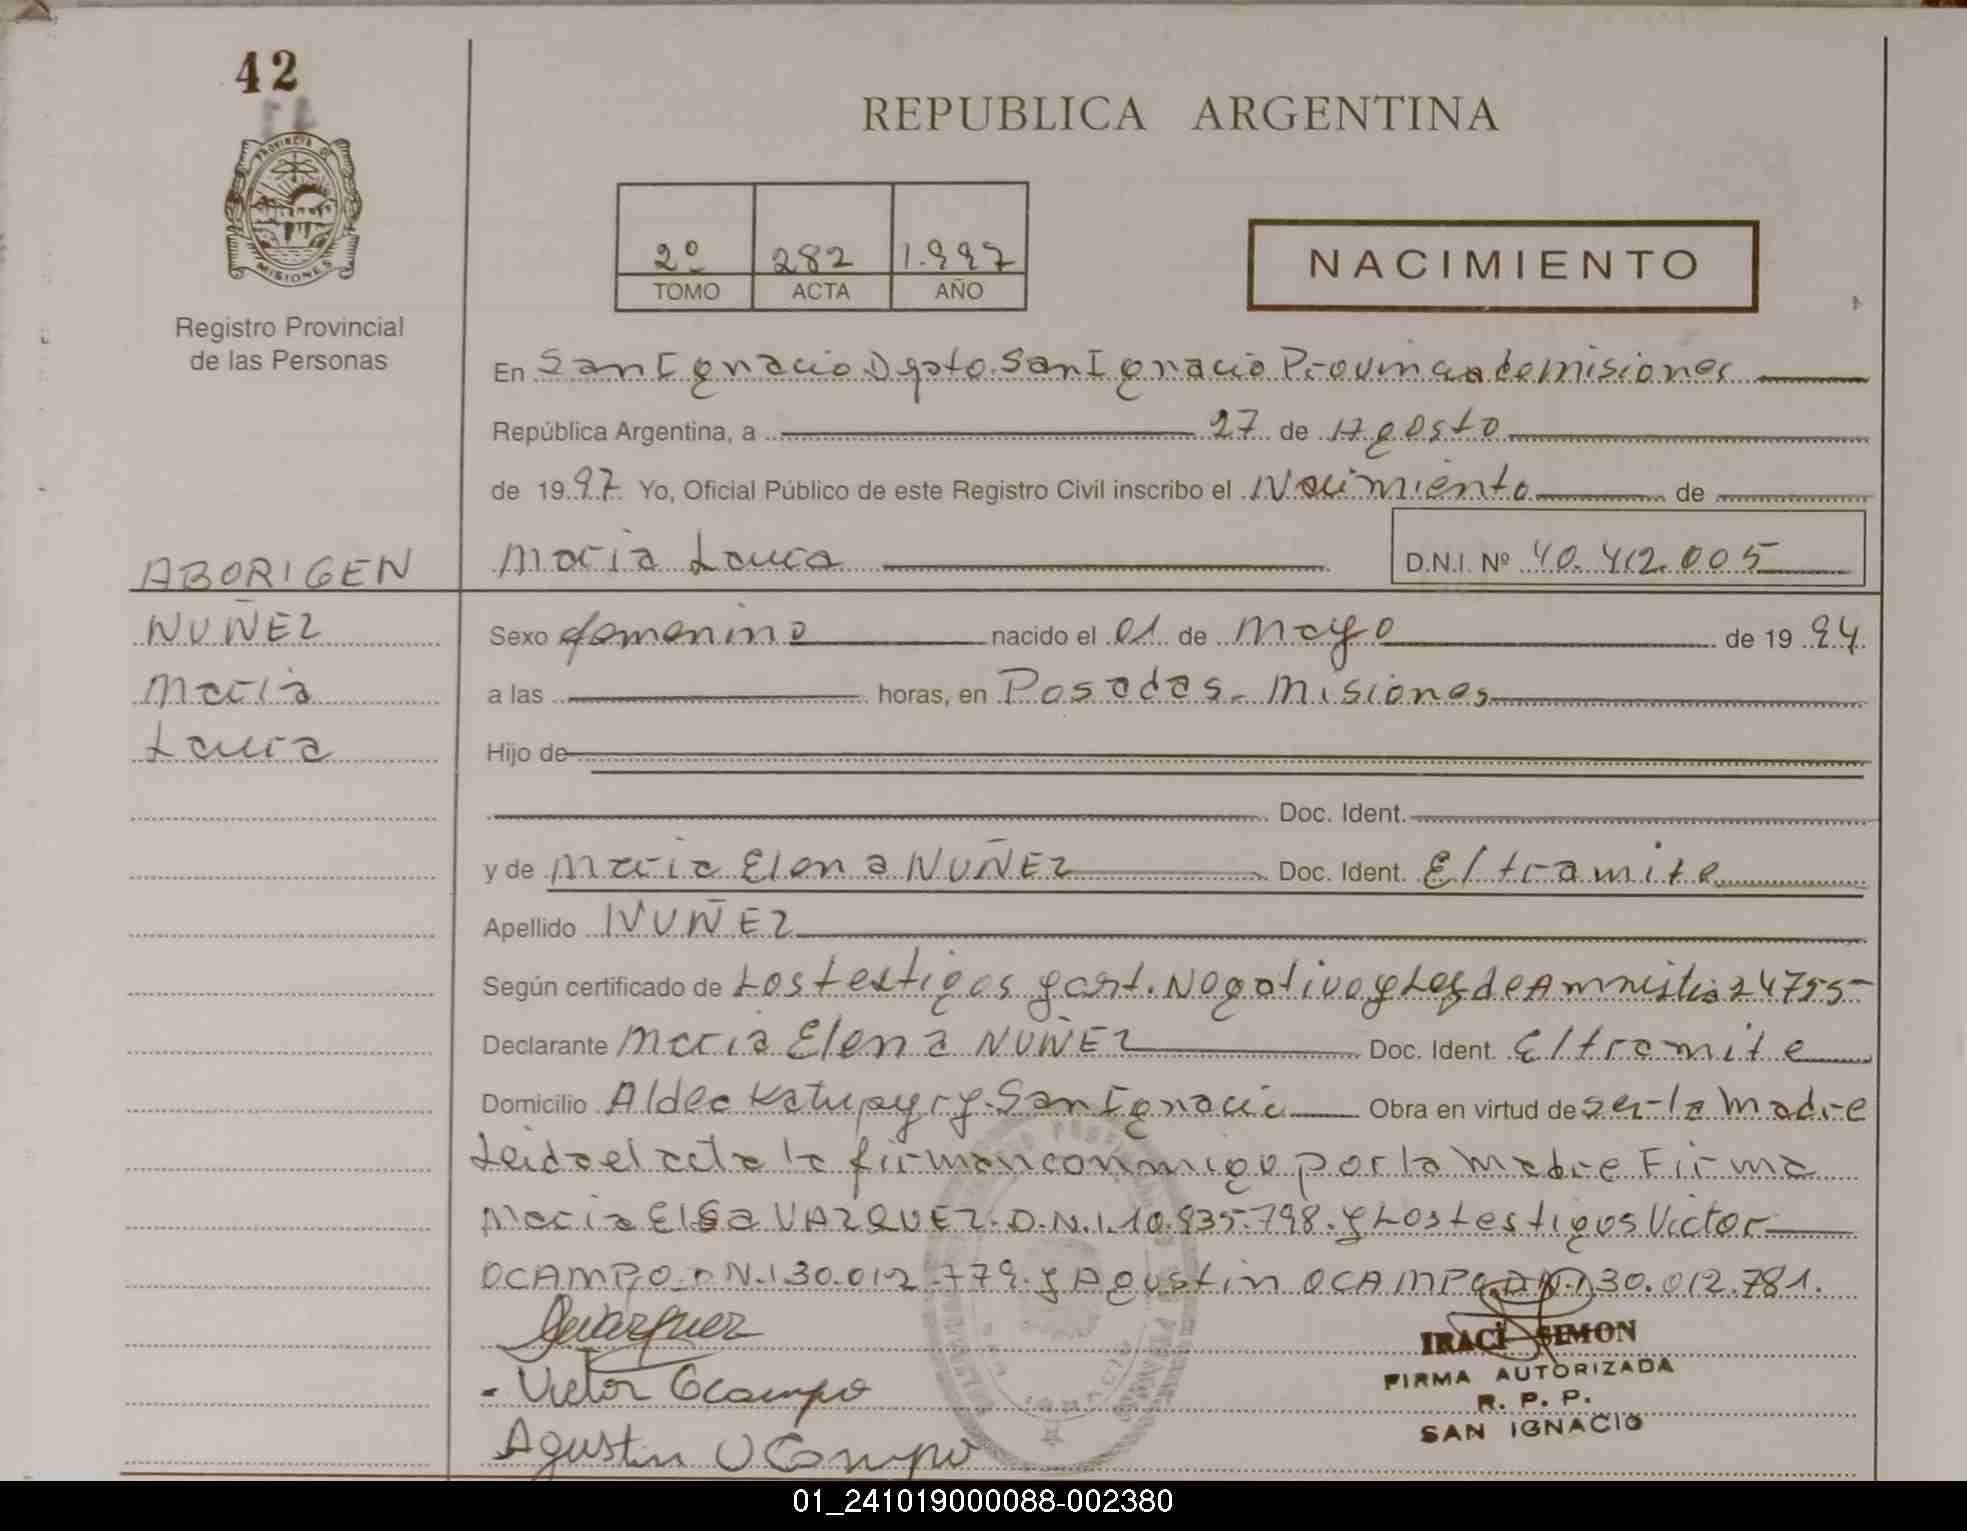 42
PROVINCIA DE
MISIONES
Registro Provincial
de las Personas
REPUBLICA ARGENTINA
2º 282 1.997
TOMO ACTA AÑO
NACIMIENTO
En San Ignacio Dpto. San Ignacio Provincia de misiones
República Argentina, a 27 de Agosto
de 1997 Yo, Oficial Público de este Registro Civil inscribo el Nacimiento de
Maria Laura D.N.I. Nº 40.412.005
ABORIGEN
NUÑEZ
Maria
Laura
Sexo femenino nacido el 01 de Mayo de 1994
a las horas, en Posadas - Misiones
Hijo de
Doc. Ident.
y de Maria Elena NUÑEZ Doc. Ident. E/tramite
Apellido NUÑEZ
Según certificado de Los testigos y cert. Negativo y Ley de Amnistia 24755-
Declarante Maria Elena NUÑEZ Doc. Ident. E/tramite
Domicilio Aldea Katupyry - San Ignacio Obra en virtud de ser la Madre
Leida el acta la firman conmigo por la Madre Firma
Maria Elsa VAZQUEZ - D.N.I. 10.935.798 - y Los testigos Victor
OCAMPO DN.I 30.012.779 - y Agustin OCAMPO DN.I 30.012.781.
Victor Ocampo
Agustin OCampo
IRACÍ SIMON
FIRMA AUTORIZADA
R. P. P.
SAN IGNACIO
01_241019000088-002380